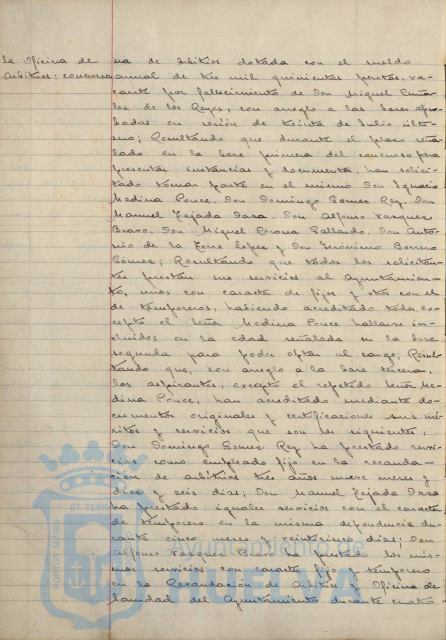 la Oficina de na de Arbitrios dotada con el sueldo
Arbitrios: concurso anual de tres mil quinientas pesetas, va-
cante por fallecimiento de Don Miguel
de los Reyes, con arreglo a las bases apro-
badas en sesión de treinta de Julio últi-
mo; Resultando que durante el plazo seña-
lado en la base primera del concurso para
presentar instancias y documentos, han solici-
tado tomar parte en el mismo Don Ignacio
Medina Ponce, Don Domingo Gomez Rey, Don
Manuel Tejada Dasa, Don Alfonso Vazquez
Bravo, Don Miguel Corona Gallardo, Don Anto-
nio de la Torre López y Don Jerónimo Borrero
Gómez; Resultando que todos los solicitan-
tes prestan sus servicios al Ayuntamien-
to, unos con caracter de fijos y otros con el
de temporeros, habiendo acreditado todos, ex-
cepto el Señor Medina Ponce hallarse in-
cluidos en la edad señalada en la base
segunda para poder optar al cargo; Resul-
tando que, con arreglo a la base tercera,
los aspirantes, excepto el repetido Señor Me-
dina Ponce, han acreditado mediante do-
cumentos originales y certificaciones sus mé-
ritos y servicios que son los siguientes:
Don Domingo Gomez Rey ha prestado servi-
cios como empleado fijo en la recauda-
ción de arbitrios tres años nueve meses y
diez y seis dias; Don Manuel Tejada Dasa
ha prestado iguales servicios con el caracter
de temporero en la misma dependencia du-
rante cinco meses y veinticinco dias; Don
Alfonso Vazquez Bravo ha prestado los mis-
mos servicios con caracter fijo y temporero
en la Recaudación de Arbitrios y Oficina de
Sanidad del Ayuntamiento durante cuatro
PORTUS MARIS
ET TERRAE
Ayuntamiento de
HUELVA